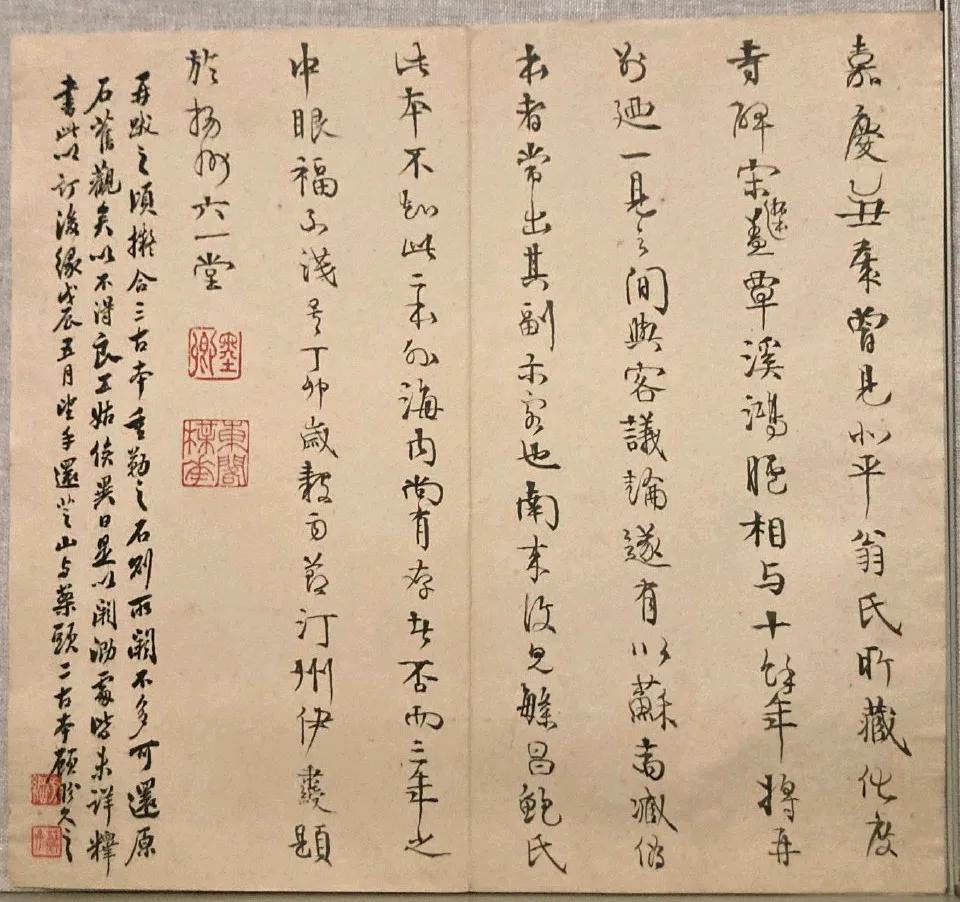 嘉慶曾見北平翁氏所藏化度
寺碑宋覃溪鴻臚相与十餘年將再
別廼一見之間與客議論遂有以蘇齋臧偽
本者常出其副示客也南来復見昌鮑氏
此本不知此二本外海内尚有存者否而三年之
中眼福不淺矣丁卯歲穀雨節汀州伊題
於揚州六一堂
墨卿
東閣
再跋之頃擬合三古本重勒之石則所闕不多可還原
石舊觀矣以不得良工姑俟異日是以闕泐處皆未詳釋
書此以訂後緣戊辰五月望手還芝山与藥頭二古本顧盼久之